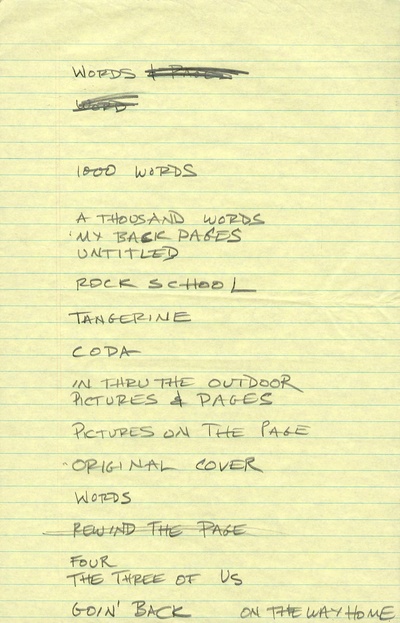 WORDS & PAGES
WORD
1000 WORDS
A THOUSAND WORDS
MY BACK PAGES
UNTITLED
ROCK SCHOOL
TANGERINE
CODA
IN THRU THE OUTDOOR
PICTURES & PAGES
PICTURES ON THE PAGE
ORIGINAL COVER
WORDS
REWIND THE PAGE
FOUR
THE THREE OF US
GOIN' BACK ON THE WAY HOME